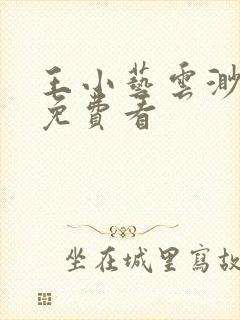 王小藝雲渺
免費看
坐在城里寫故